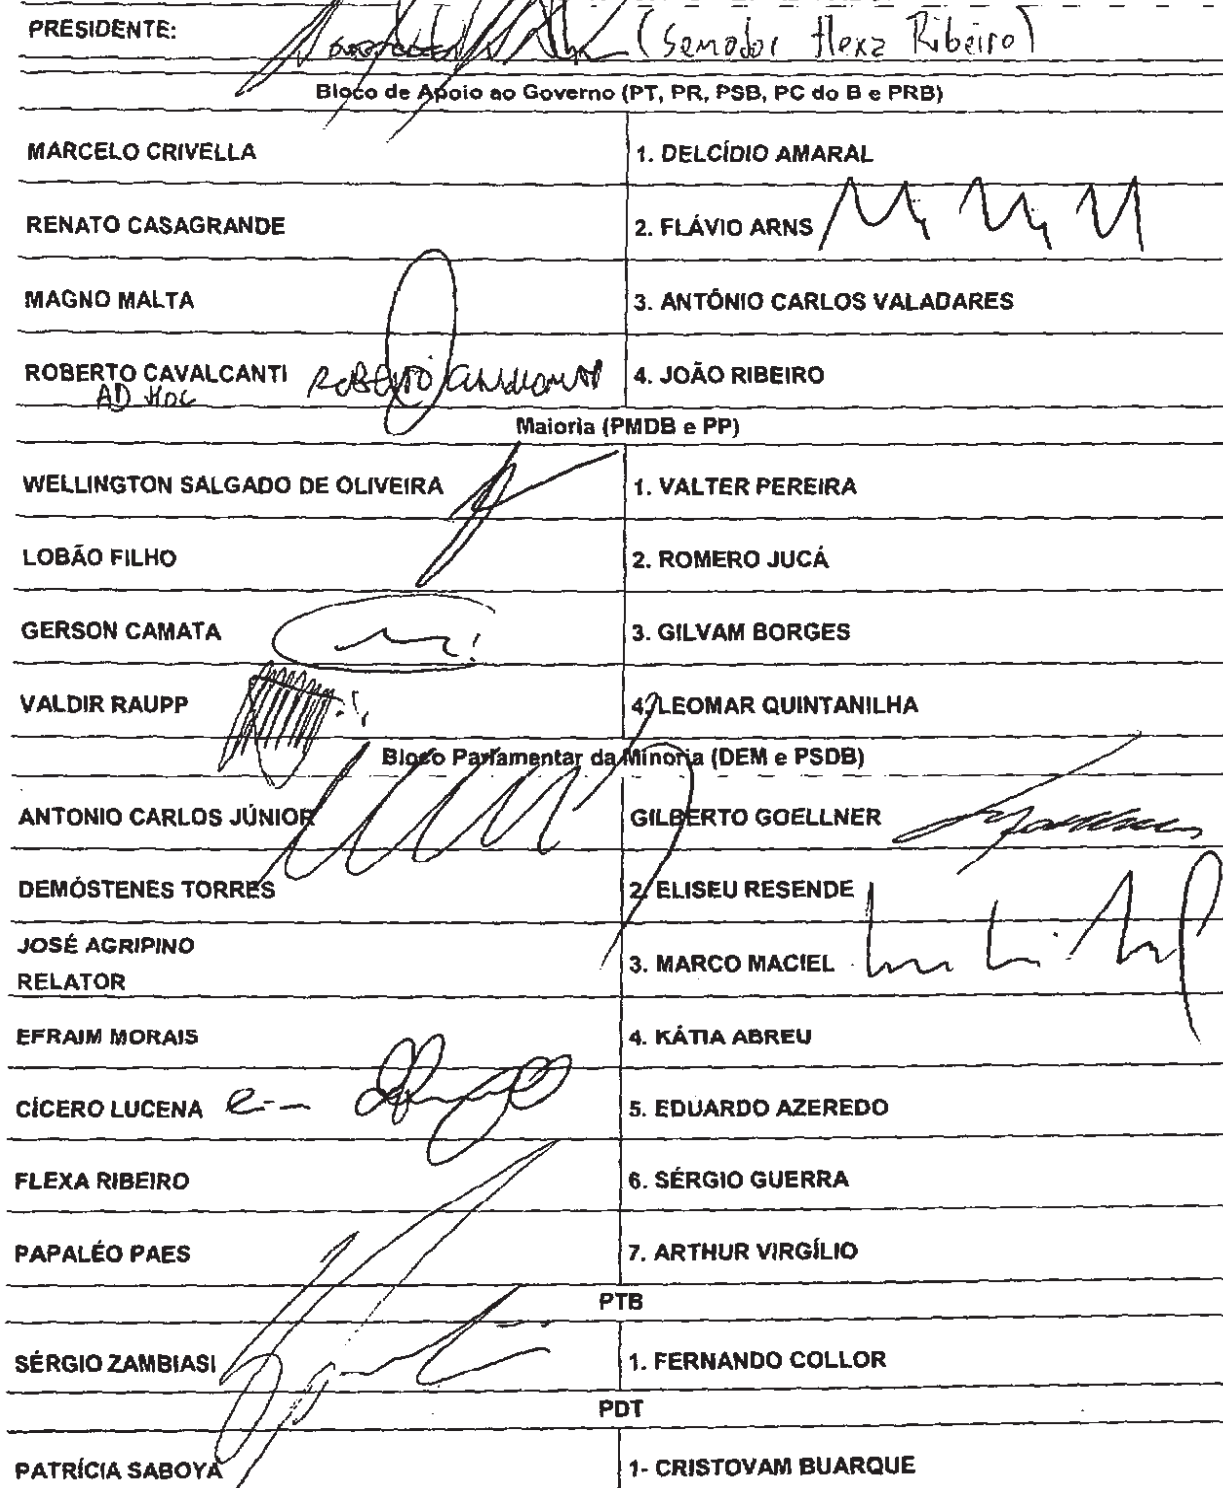 PRESIDENTE: (Senador Flexa Ribeiro)
Bloco de Apoio ao Governo (PT, PR, PSB, PC do B e PRB)
MARCELO CRIVELLA 1. DELCÍDIO AMARAL
RENATO CASAGRANDE 2. FLÁVIO ARNS
MAGNO MALTA 3. ANTÔNIO CARLOS VALADARES
ROBERTO CAVALCANTI ROBERTO CAVALCANTI 4. JOÃO RIBEIRO
AD HOC
Maioria (PMDB e PP)
WELLINGTON SALGADO DE OLIVEIRA 1. VALTER PEREIRA
LOBÃO FILHO 2. ROMERO JUCÁ
GERSON CAMATA 3. GILVAM BORGES
VALDIR RAUPP 4. LEOMAR QUINTANILHA
Bloco Parlamentar da Minoria (DEM e PSDB)
ANTONIO CARLOS JÚNIOR GILBERTO GOELLNER
DEMÓSTENES TORRES 2. ELISEU RESENDE
JOSÉ AGRIPINO
RELATOR
3. MARCO MACIEL
EFRAIM MORAIS 4. KÁTIA ABREU
CÍCERO LUCENA 5. EDUARDO AZEREDO
FLEXA RIBEIRO 6. SÉRGIO GUERRA
PAPALÉO PAES 7. ARTHUR VIRGÍLIO
PTB
SÉRGIO ZAMBIASI 1. FERNANDO COLLOR
PDT
PATRÍCIA SABOYA 1- CRISTOVAM BUARQUE